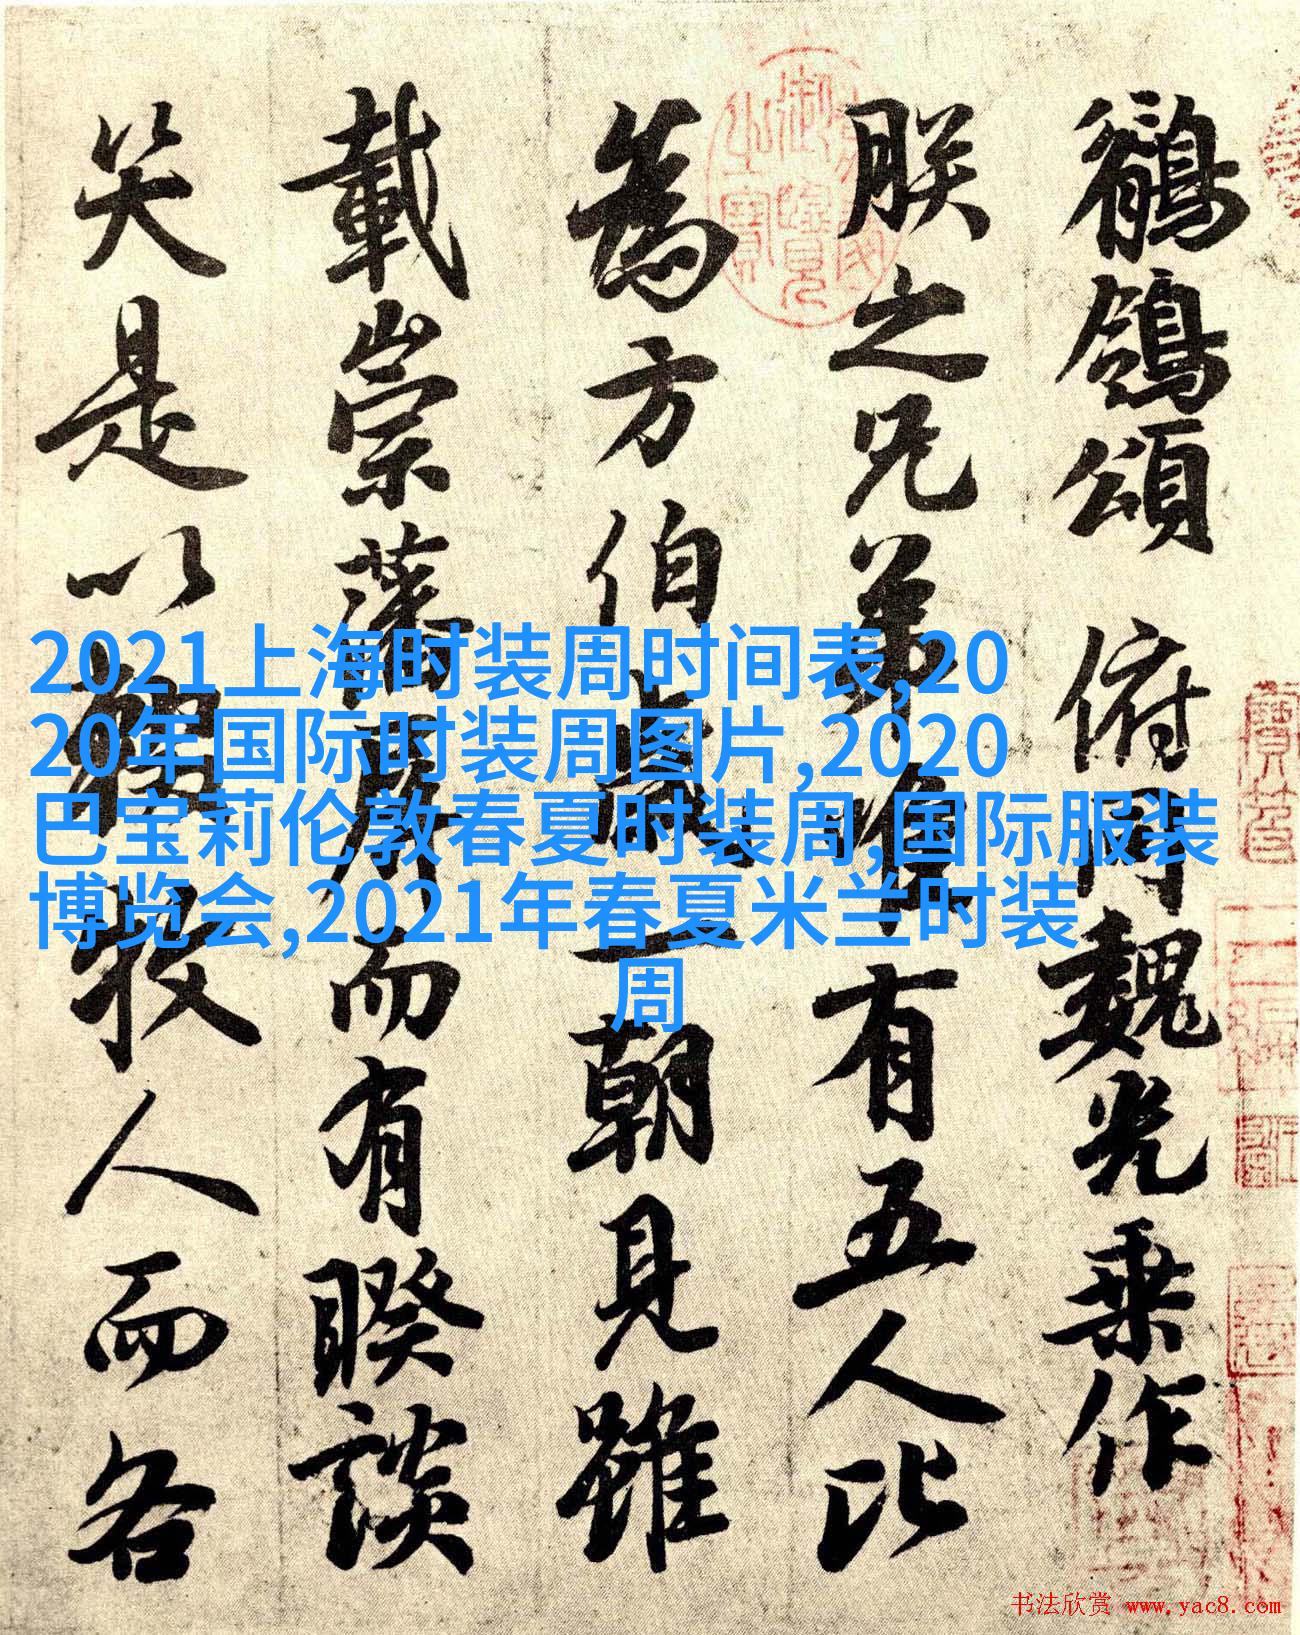 鶺鴒頌 俯同魏光乘作
朕之兄弟唯有五人比
為方伯歲一朝見雖
載崇藩屏而有睽談
笑是以輟牧人而各
2021上海时装周时间表,20
20年国际时装周图片,2020
巴宝莉伦敦春夏时装周,国际服装
博览会,2021年春夏米兰时装
周
书法欣赏 www.yac8.com